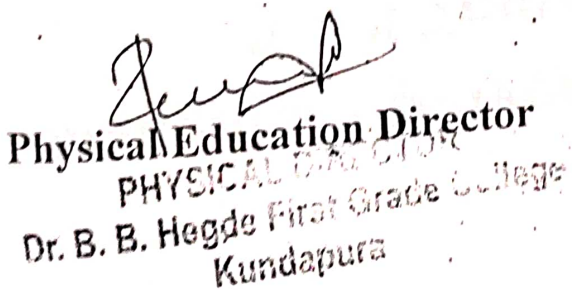 Physical Education Director
PHYSICAL DIRECTOR
Dr. B. B. Hegde First Grade College
Kundapura